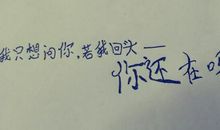 我只想问你,若我回头—
你还在吗